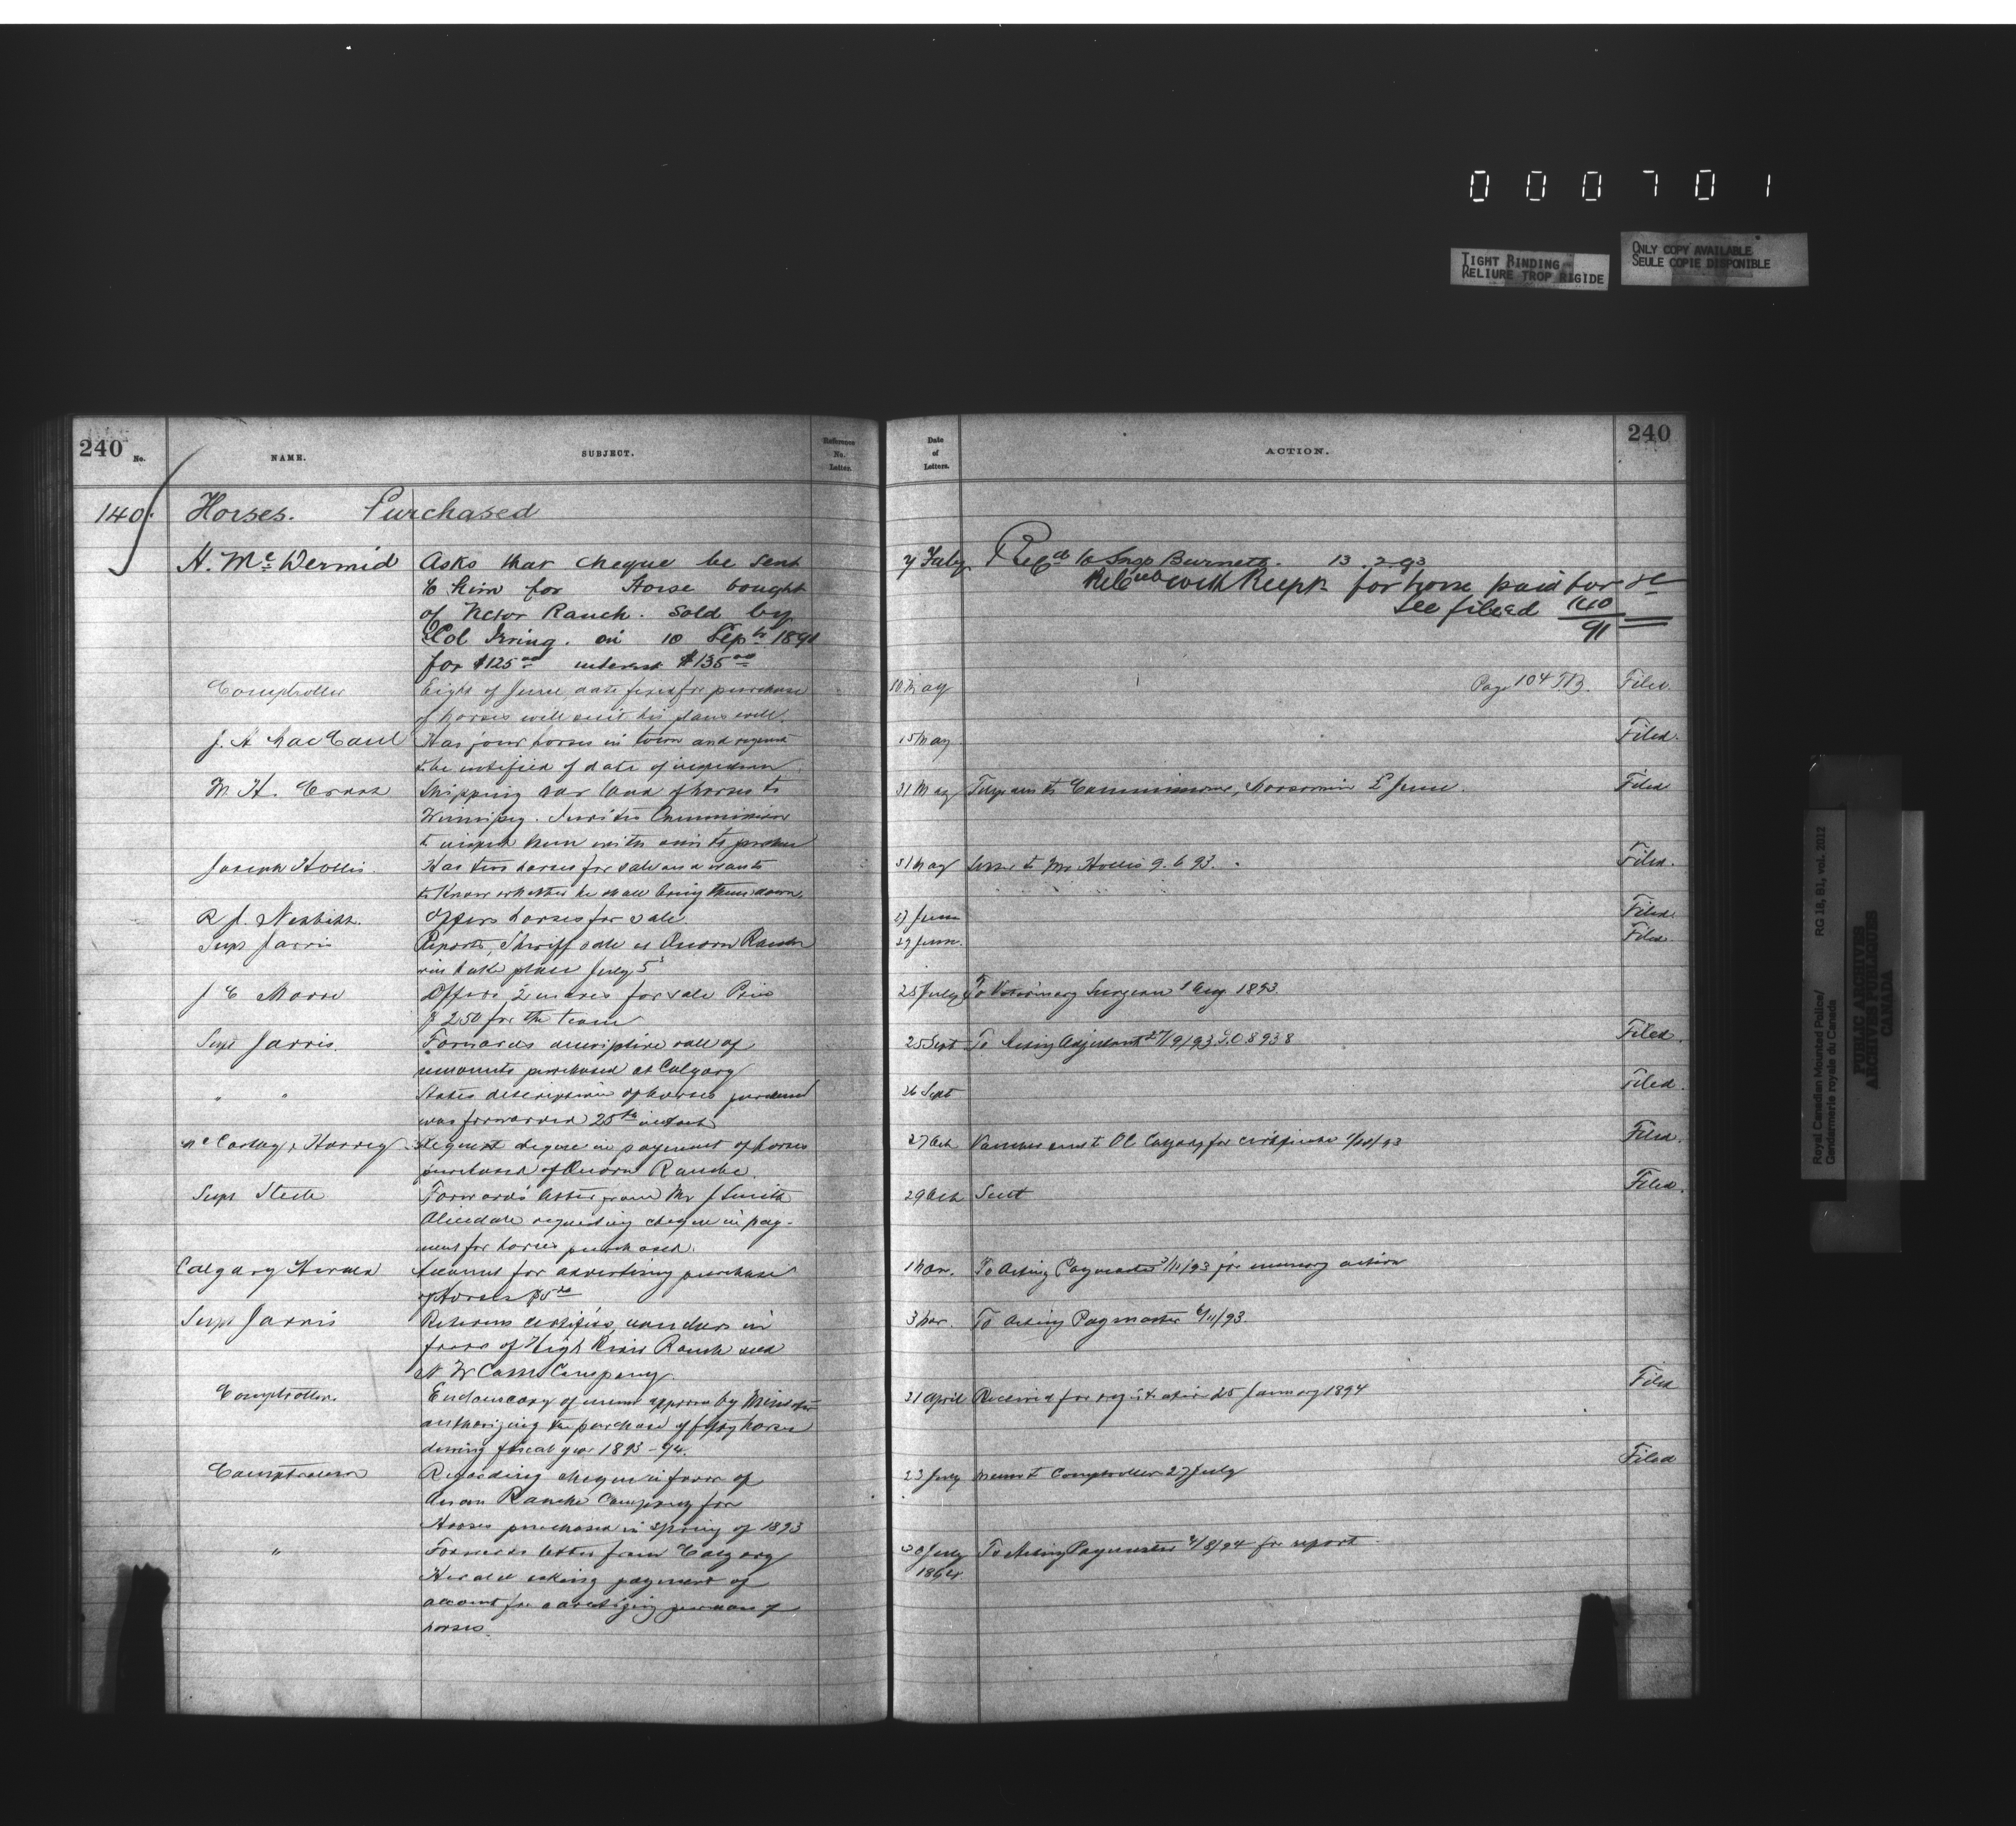 0 0 0 7 0 1
TIGHT BINDING
RELIURE TROP RIGIDE
ONLY COPY AVAILABLE
SEULE COPIE DISPONIBLE
240 No. NAME. SUBJECT. Reference No. Letter.
Date of Letters. ACTION. 240
140. Horses. Purchased
H. McDermid Asks that cheque be sent
to him for Horse bought
of Ranch. Sold by
Col Irving. on 10 Sept 1891
for $125.00 interest $135.00
7 Feby Refd to Insp Burnett. 13.2.93
with Receipt for horse paid for &c
See filed 140/91
Comptroller Eight of June date fixed for purchase
of horses will suit his plans well.
10 May Page 104 T.B. Filed.
J. A. MacCaul Has four horses in town and request
to be notified of date of inspection
15 May Filed.
W. H. Shipping car load of horses to
Winnipeg. Invites Commissioner
to inspect them with view to purchase
31 May Telegram to Commissioner, Moosomin 2d June. Filed
Joseph Hollis. Has two horses for sale and wants
to know whether he shall bring them down.
31 May Letter to Mr Hollis 9.6.93. Filed.
R J. Nesbitt. Offers horses for sale.
17 June Filed.
Supt Jarvis Reports, Sheriff sale at Quorn Ranche
will take place July 5
29 June. Filed.
J E Offers 2 mares for sale Price
$250 for the team
25 July To Veterinary Surgeon 1 Aug. 1893.
Supt Jarvis. Forwards descriptive roll of
remounts purchased at Calgary
25 Sept To Acting Adjutant 27/9/93 L.O.8938 Filed.
" " States description of horses purchased
was forwarded 25th instant
26 Sept Filed.
McCarthy & Harvey Request cheque in payment of horses
purchased of Quorn Ranche
27 Oct Voucher sent to OC Calgary for certificate Filed.
Supt Steele Forwards letter from Mr J Smith
requesting cheque in pay-
ment for horses purchased.
29 Oct Sent Filed.
Calgary Herald Account for advertising purchase
of horses $5.00
1 Nov. To Acting Paymaster 3/11/93 for necessary action
Supt Jarvis Returns certified vouchers in
favor of High River Ranch and
N W Company.
3 Nov. To Acting Paymaster 6/11/93.
Comptroller. Enclosed copy of memo approved by Minister
authorizing the purchase of fifty horses
during fiscal year 1893-94.
21 April Received for registration 25 January 1894 Filed
Comptroller Regarding cheque in favor of
Quorn Ranche Company for
Horses purchased in Spring of 1893
23 July Memo to Comptroller 27 July Filed
" Forwards letter from Calgary
Herald asking payment of
account for advertising purchase of
horses.
30 July To Acting Paymaster 4/8/94 for report
Royal Canadian Mounted Police/ RG 18, B1, vol. 2012
Gendarmerie royale du Canada
PUBLIC ARCHIVES
ARCHIVES PUBLIQUES
CANADA